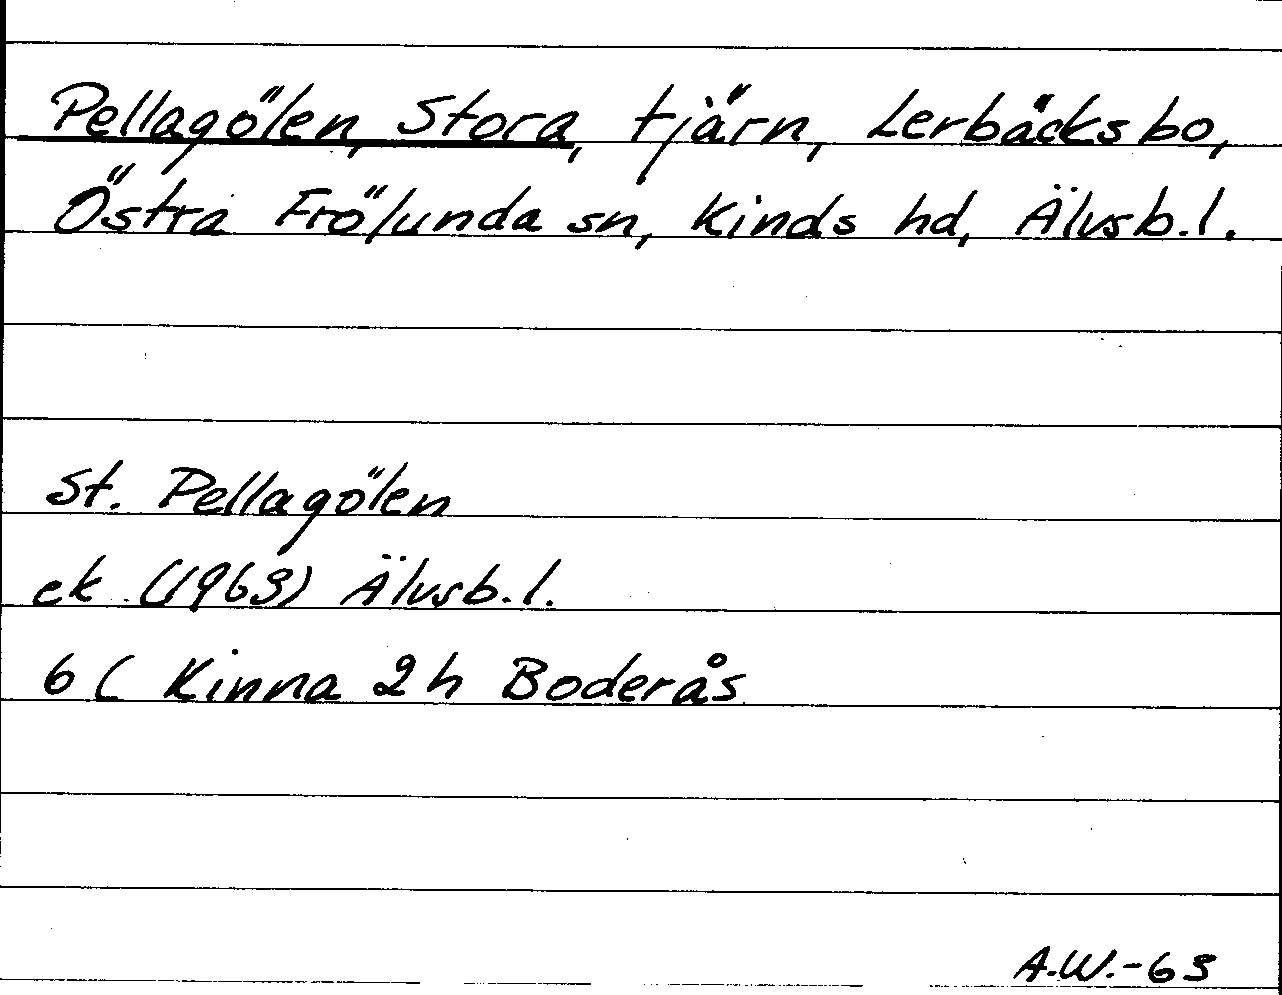 Pellagölen, Stora, tjärn, Lerbäcksbo,
Östra Frölunda sn, Kinds hd, Älvsb.l.
St. Pellagölen
ek (1963) Älvsb.l.
6 C Kinna 2 h Boderås
A.W.-63